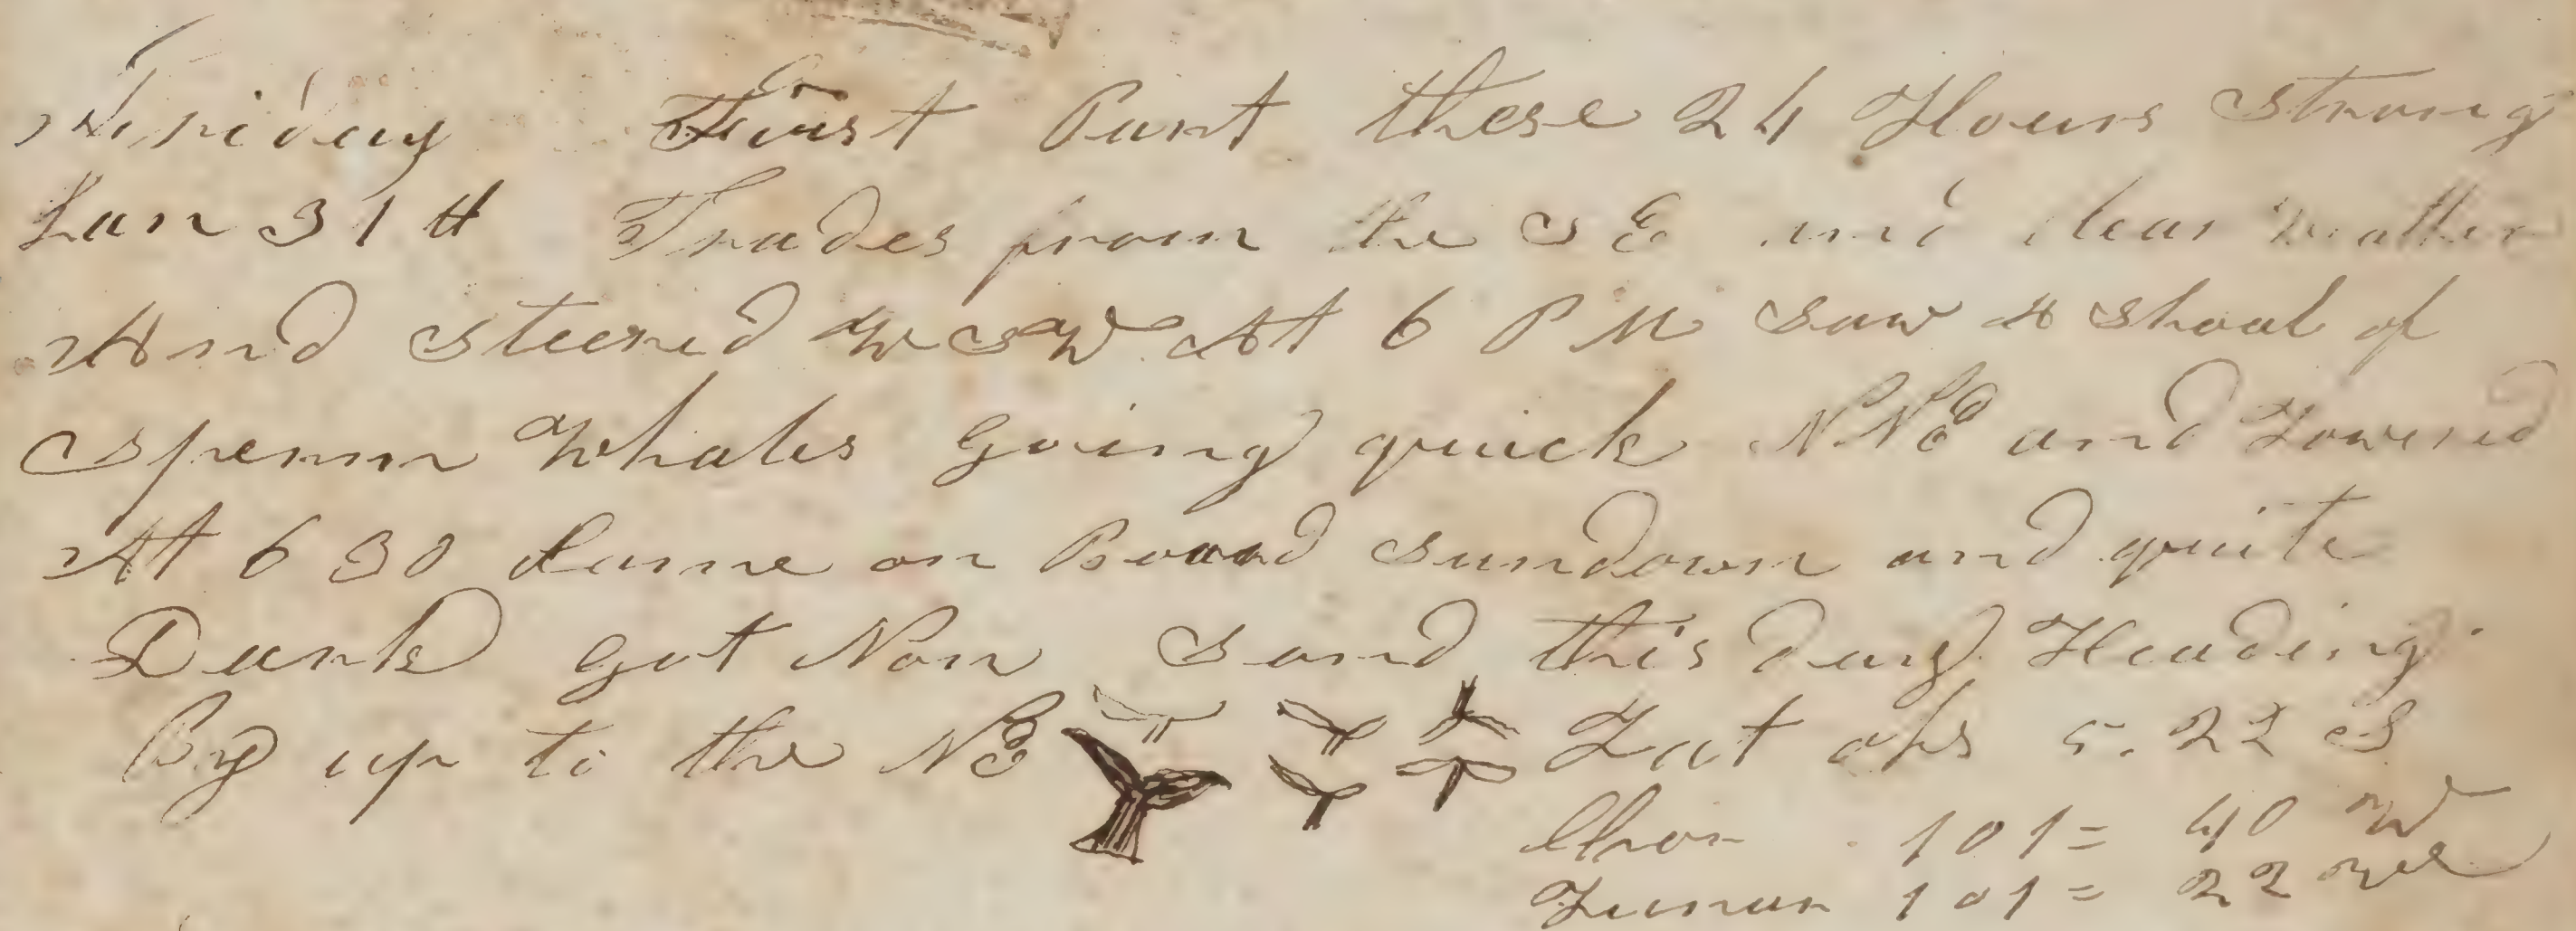 Friday First Part these 24 Hours Strong
Jan 31 st Trades from the S E and clear Weather
And Steered W S W At 6 P M Saw A Shoal of
Sperm Whales Going quick NNE and Lowered
At 6 30 Came on Board Sundown and quite
Dark Got Non Sand this day Heading
By up to the NE Lat obs 5. 22 S
Chron 101 = 40 W
Lunar 101 = 22